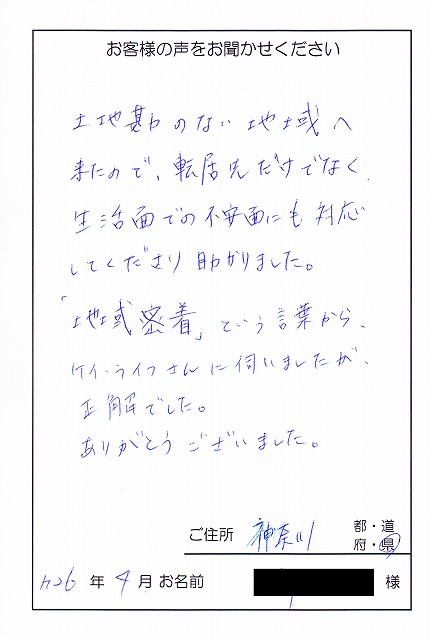 お客様の声をお聞かせください
土地勘のない地域へ
来たので、転居先だけでなく、
生活面での不安面にも対応
してくださり助かりました。
「地域密着」という言葉から、
ケイ・ライフさんに伺いましたが、
正解でした。
ありがとうございました。
ご住所 神奈川 都・道
府・県
H26 年 4 月 お名前 様